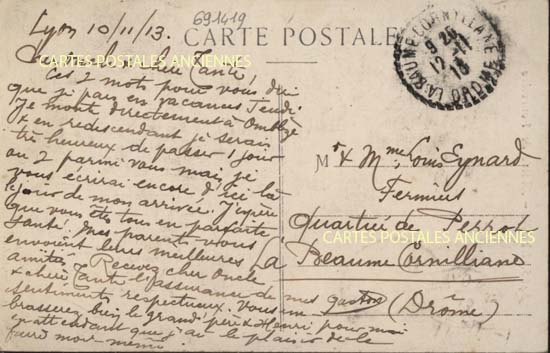 691419
Lyon 10/11/13.
CARTE POSTALE
CARTES POSTALES ANCIENNES
LA BAUME-CORNILLANE
9 20
12 - 11
13
DROME
Cher Oncle, chère Tante,
Ces 2 mots pour vous dire
que je pars en vacances Jeudi
Je monte directement à Omblèze
& en redescendant je serais
très heureux de passer 1 jour
ou 2 parmi vous mais je
vous écrirai encore d'ici là
le jour de mon arrivée. J'espère
que vous êtes tous en parfaite
santé. Mes parents vous
envoient leurs meilleures
amitiés. Recevez cher Oncle
& chère Tante l'assurance de mes
sentiments respectueux. Vous
embrasserez bien le grand père & Henri pour moi
en attendant que j'ai le plaisir de le
faire moi même
Mr & Mme Louis Eynard
Fermiers
Quartier de
CARTES POSTALES ANCIENNES
La Beaume Cornilliane
(Drôme)